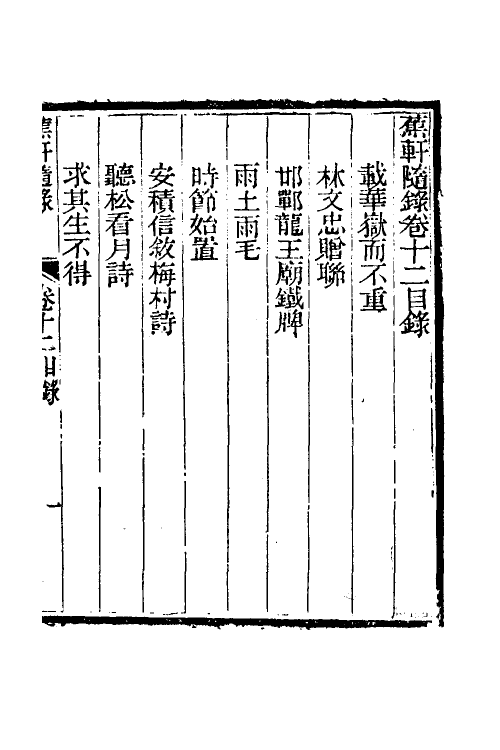 蕉軒隨錄卷十二目錄
載華嶽而不重
林文忠贈聯
邯鄲龍王廟鐵牌
雨土雨毛
時節始置
安積信敘梅村詩
聽松看月詩
求其生不得
蕉軒隨錄
卷十二目錄
一